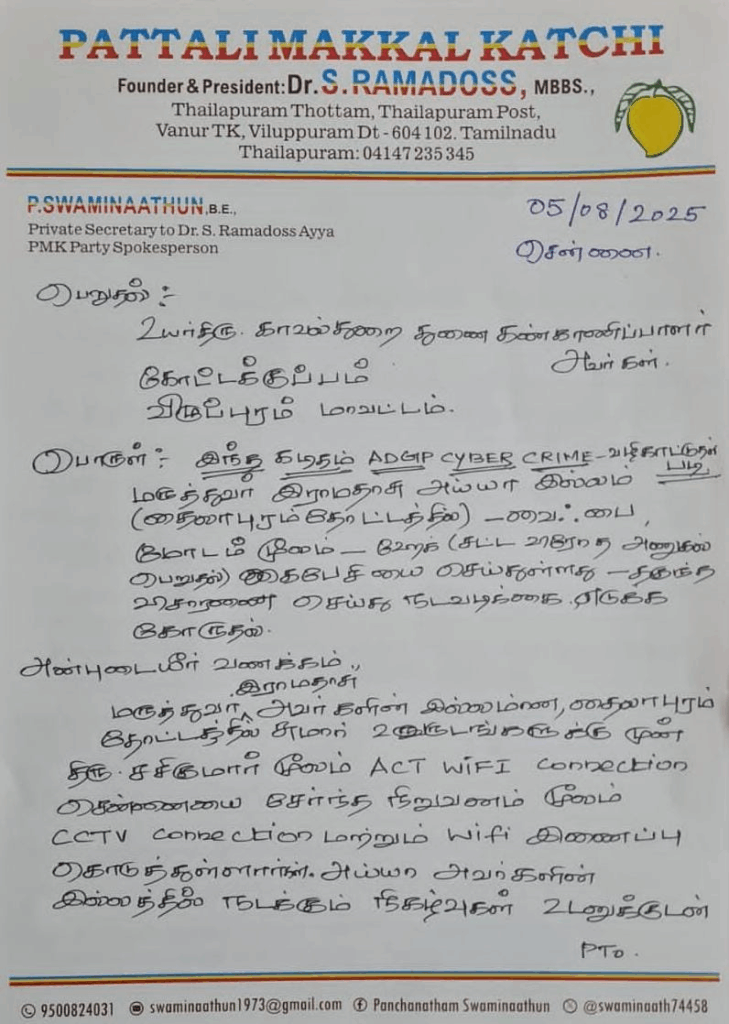 PATTALI MAKKAL KATCHI
Founder & President: Dr. S. RAMADOSS, MBBS.,
Thailapuram Thottam, Thailapuram Post,
Vanur TK, Viluppuram Dt - 604 102. Tamilnadu
Thailapuram: 04147 235 345
P.SWAMINAATHUN,B.E.,
Private Secretary to Dr. S. Ramadoss Ayya
PMK Party Spokesperson
05/08/2025
சென்னை.
பெறுதல் :-
உயர்திரு. காவல்துறை துணை கண்காணிப்பாளர்
அவர்கள்.
கோட்டக்குப்பம்
விழுப்புரம் மாவட்டம்.
பொருள் :- இந்த கடிதம் ADGP CYBER CRIME - வழிகாட்டுதல்
படி
மருத்துவர் இராமதாசு அய்யா இல்லம்
(தைலாபுரம் தோட்டத்தில்) - வை ஃ பை,
மோடம் மூலம் - ஹேக் (சட்ட விரோத அணுகல்
பெறுதல்) கைபேசியை செய்துள்ளது - தகுந்த
விசாரணை செய்து நடவடிக்கை எடுக்க
கோருதல்.
அன்புடையீர் வணக்கம்,
இராமதாசு
மருத்துவர் அவர்களின் இல்லமான, தைலாபுரம்
தோட்டத்தில் சுமார் வருடங்களுக்கு முன்
திரு. சசிகுமார் மூலம் ACT WiFI Connection
சென்னையை சேர்ந்த நிறுவனம் மூலம்
CCTV Connection மற்றும் Wifi இணைப்பு
கொடுத்துள்ளார்கள். அய்யா அவர்களின்
இல்லத்தில் நடக்கும் நிகழ்வுகள் உடனுக்குடன்
PTO.
9500824031 swaminaathun1973@gmail.com Panchanatham Swaminaathun @swaminaath74458